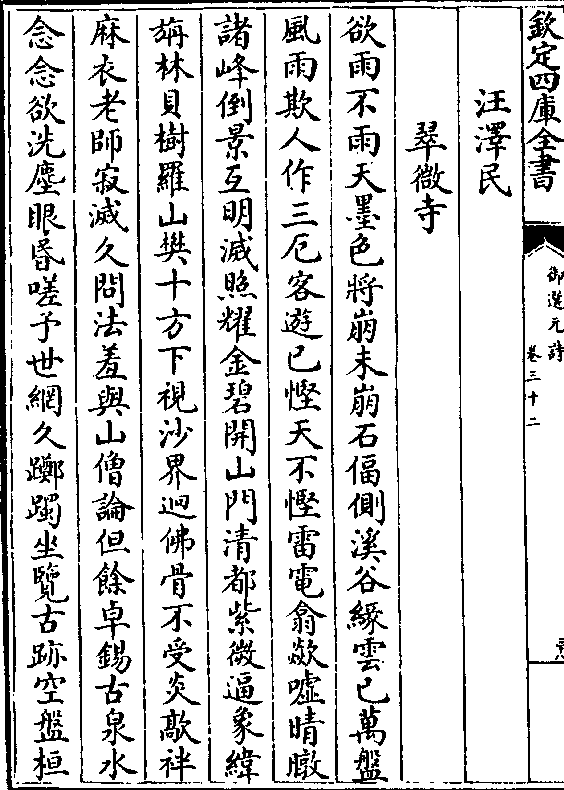 欽定四庫全書
御選元詩
卷三十二
汪澤民
翠微寺
欲雨不雨天墨色將崩未崩石偪側溪谷緣雲已萬盤
風雨欺人作三厄客遊已慳天不慳雷電翕歘噓晴暾
諸峰倒景互明滅照耀金碧開山門清都紫微逼象緯
旃林貝樹羅山樊十方下視沙界迥佛骨不受炎歊袢
麻衣老師寂滅久問法羞與山僧論但餘卓錫古泉水
念念欲洗塵眼昏嗟予世網久躑躅坐覽古跡空盤桓